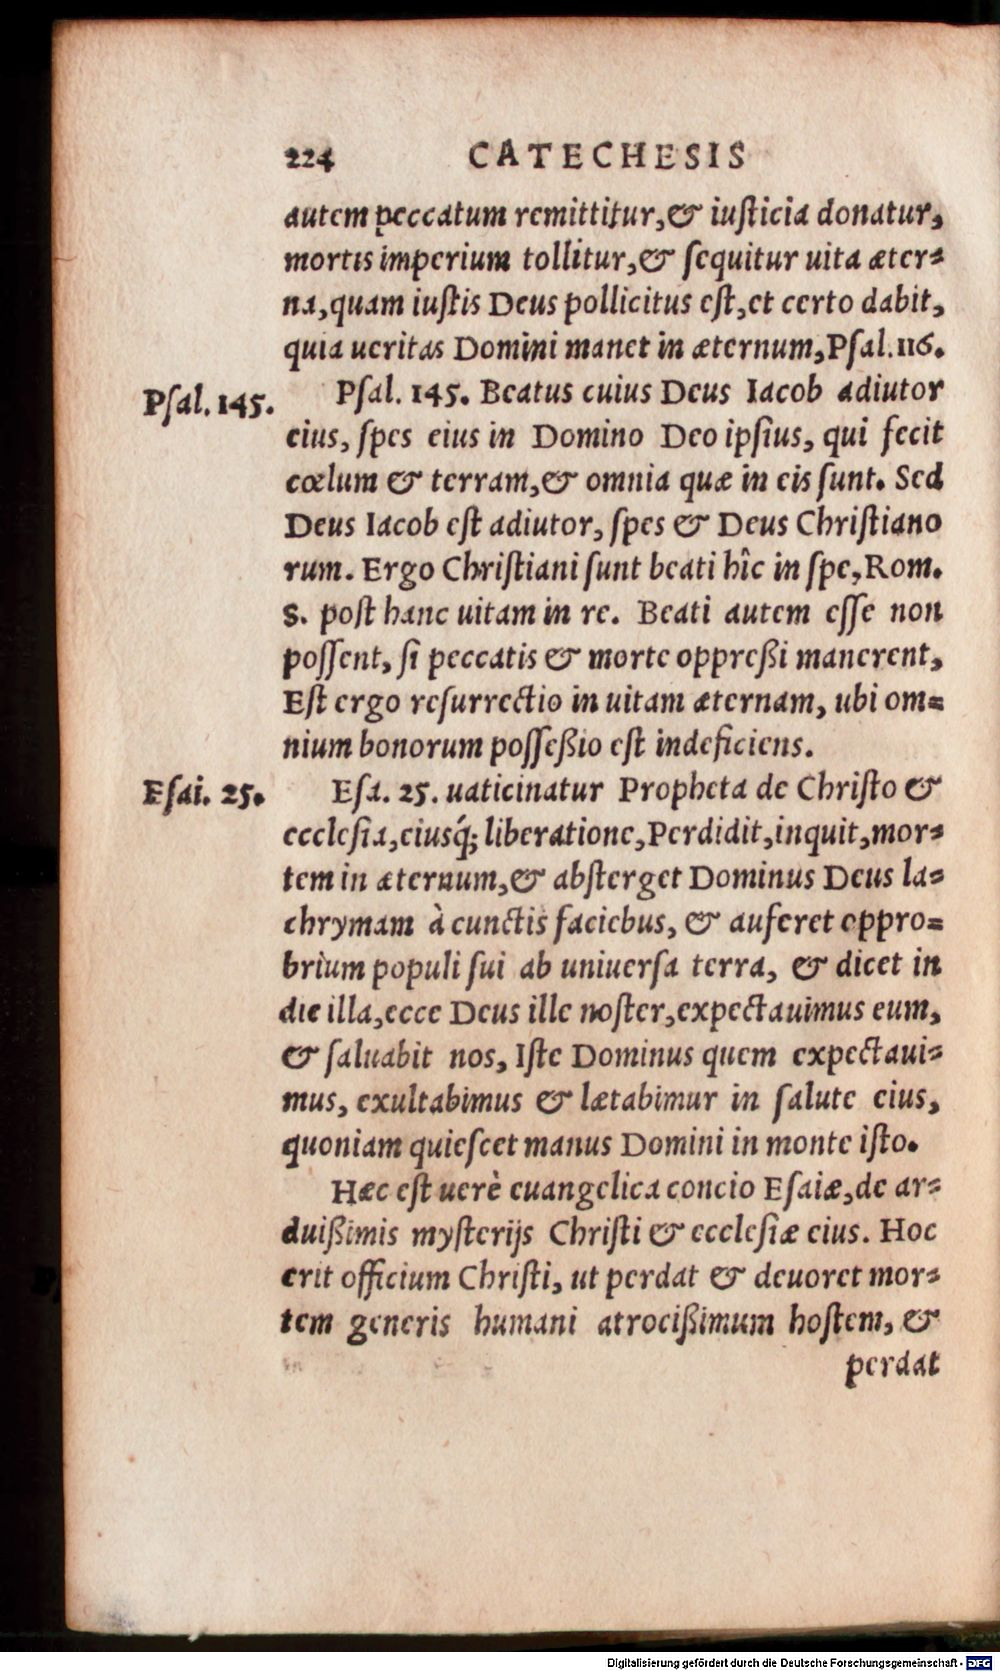 224 CATECHESIS
autem peccatum remittitur,& iusticia donatur,
mortis imperium tollitur,& sequitur uita æter=
na,quam iustis Deus pollicitus est,et certo dabit,
quia ueritas Domini manet in æternum,Psal.116.
Psal. 145.
Psal. 145. Beatus cuius Deus Iacob adiutor
eius, spes eius in Domino Deo ipsius, qui fecit
cœlum & terram,& omnia quæ in eis sunt. Sed
Deus Iacob est adiutor, spes & Deus Christiano
rum. Ergo Christiani sunt beati hîc in spe,Rom.
8. post hanc uitam in re. Beati autem esse non
possent, si peccatis & morte oppreßi manerent,
Est ergo resurrectio in uitam æternam, ubi om=
nium bonorum posseßio est indeficiens.
Esai. 25.
Esa. 25. uaticinatur Propheta de Christo &
ecclesia,eiusq́; liberatione,Perdidit,inquit,mor=
tem in æternum,& absterget Dominus Deus la=
chrymam à cunctis faciebus, & auferet oppro=
brium populi sui ab uniuersa terra, & dicet in
die illa,ecce Deus ille noster,expectauimus eum,
& saluabit nos, Iste Dominus quem expectaui=
mus, exultabimus & lætabimur in salute eius,
quoniam quiescet manus Domini in monte isto.
Hæc est uerè euangelica concio Esaiæ,de ar=
duißimis mysterijs Christi & ecclesiæ eius. Hoc
erit officium Christi, ut perdat & deuoret mor=
tem generis humani atrocißimum hostem, &
perdat
Digitalisierung gefördert durch die Deutsche Forschungsgemeinschaft - DFG